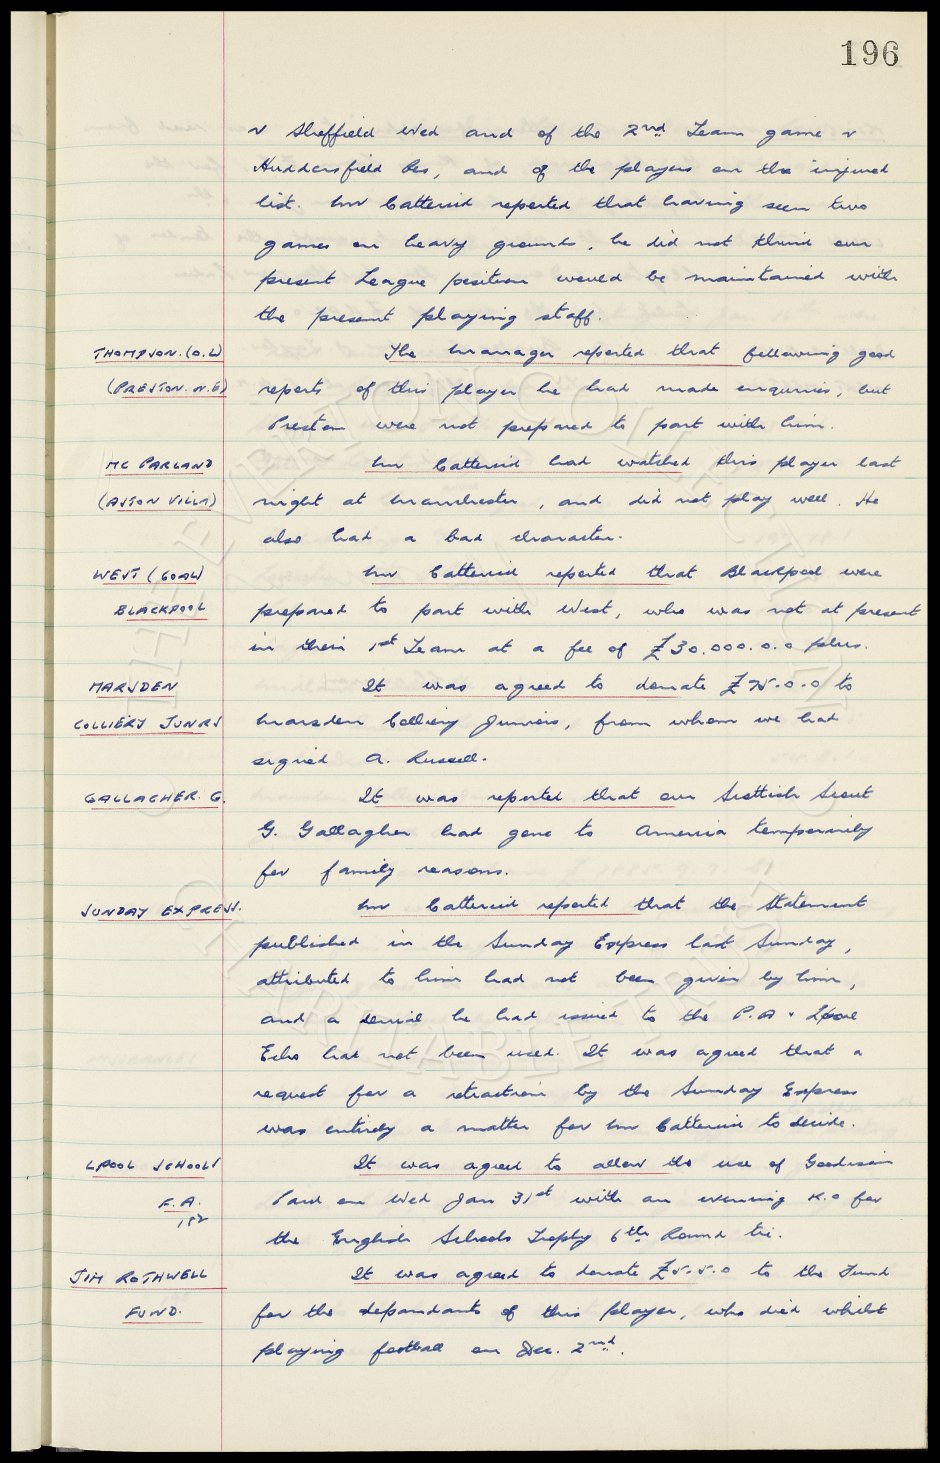 196
v Sheffield Wed and of the 2nd Team game v
Huddersfield Res, and of the players on the injured
list. Mr Catterick reported that having seen two
games on heavy grounds, he did not think our
present League position would be maintained with
the present playing staff.
THOMPSON. (O.L) The manager reported that following good
(PRESTON. N.E) reports of this player he had made enquiries, but
Preston were not prepared to part with him.
MC PARLAND Mr Catterick had watched this player last
(ASTON VILLA) night at Manchester, and did not play well. He
also had a bad character.
WEST (GOAL) Mr Catterick reported that Blackpool were
BLACKPOOL prepared to part with West, who was not at present
in their 1st Team at a fee of £30.000.0.0 plus.
MARSDEN It was agreed to donate £75.0.0 to
COLLIERY JUNRS Marsden Colliery Juniors, from whom we had
signed A. Russell.
GALLAGHER. G. It was reported that our Scottish Scout
G. Gallagher had gone to America temporarily
for family reasons.
SUNDAY EXPRESS. Mr Catterick reported that the Statement
published in the Sunday Express last Sunday,
attributed to him had not been given by him,
and a denial he had issued to the P.A & Lpool
Echo had not been used. It was agreed that a
request for a retraction by the Sunday Express
was entirely a matter for Mr Catterick to decide.
LPOOL SCHOOLS It was agreed to allow the use of Goodison
F.A. Park on Wed Jan 31st with an evening K.O for
the English Schools Trophy 6th Round tie.
JIM ROTHWELL It was agreed to donate £5.5.0 to the Fund
FUND. for the dependants of this player, who died whilst
playing football on Dec. 2nd.